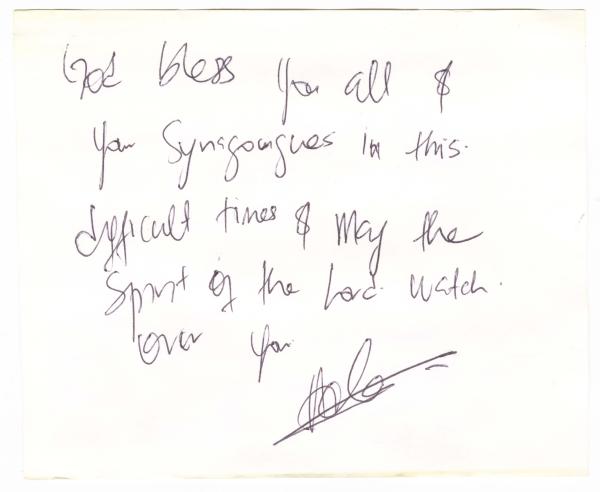 God bless you all &
your Synagongues in this.
difficult times & May the
Spirit of the Lord watch.
over you.